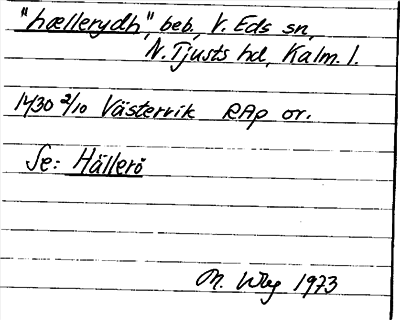 "hællerydh", beb., V. Eds sn,
N. Tjusts hd, Kalm. l.
1430 2/10 Västervik RAp or.
Se: Hällerö
M. Wbg 1973